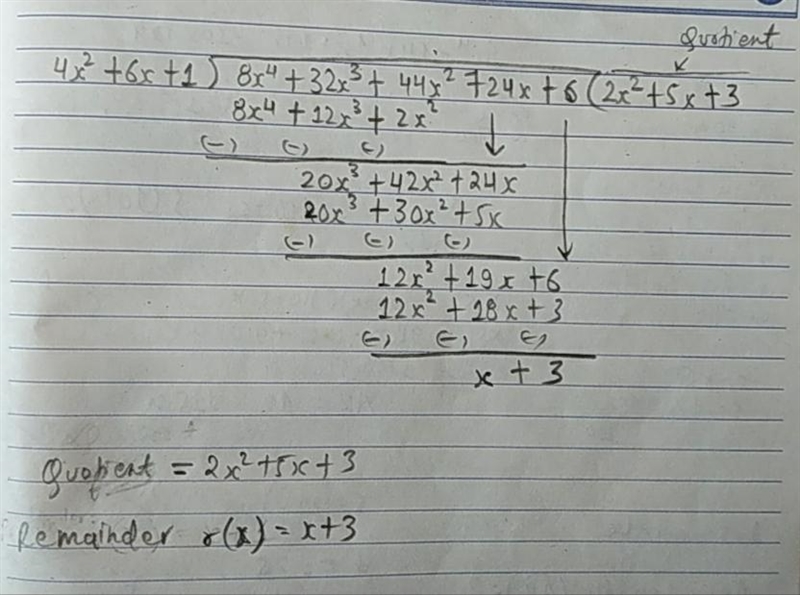 Quotient
4x² + 6x + 1 ) 8x⁴ + 32x³ + 44x² + 24x + 6 ( 2x² + 5x + 3
8x⁴ + 12x³ + 2x²
(-) (-) (-)
20x³ + 42x² + 24x
20x³ + 30x² + 5x
(-) (-) (-)
12x² + 19x + 6
12x² + 18x + 3
(-) (-) (-)
x + 3
Quotient = 2x² + 5x + 3
Remainder r(x) = x + 3